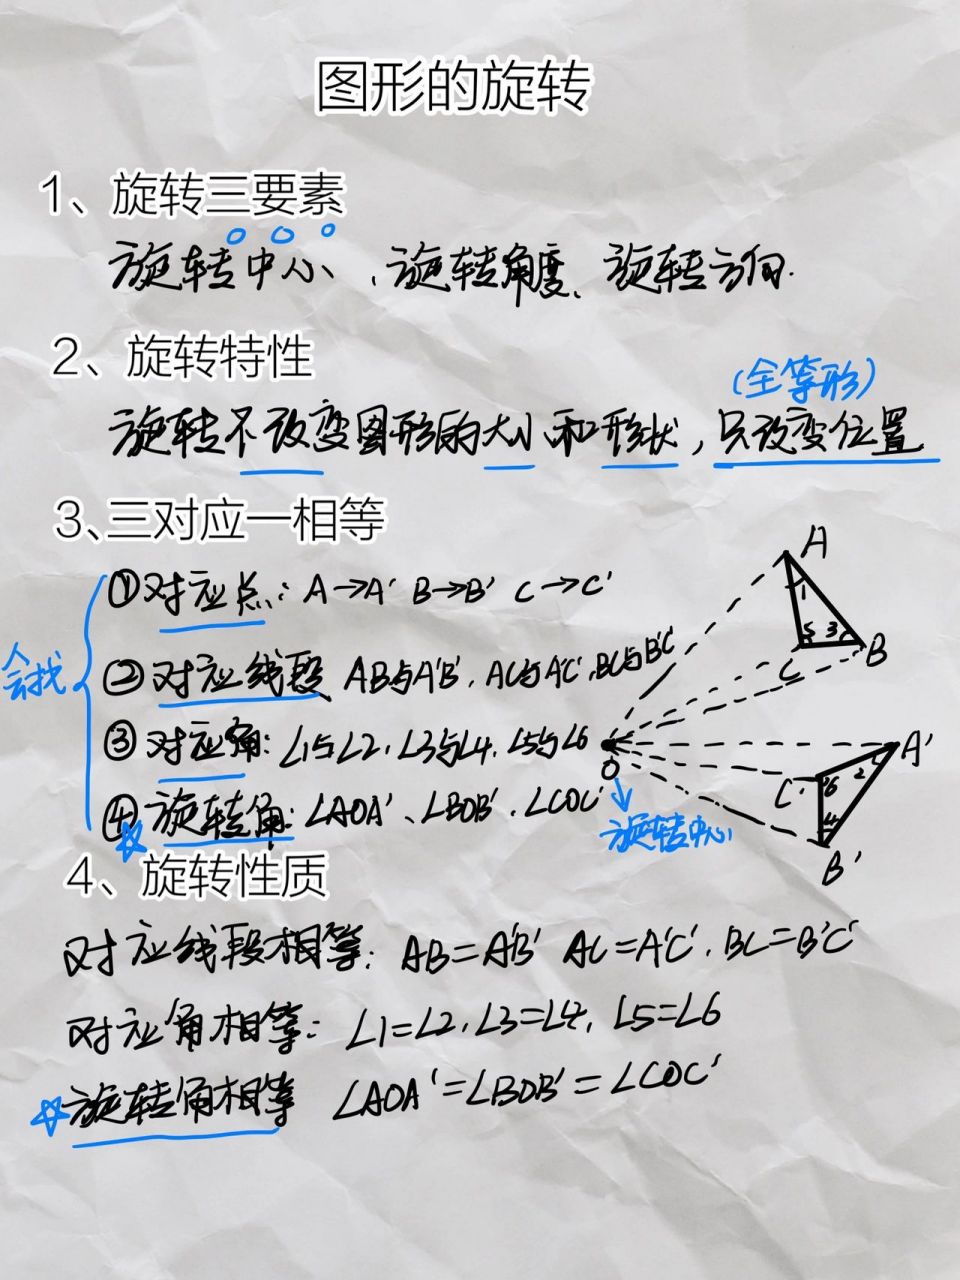 图形的旋转
1、旋转三要素
旋转中心、旋转角度、旋转方向.
2、旋转特性
(全等形)
旋转不改变图形的大小和形状，只改变位置
3、三对应一相等
会找
①对应点: A→A' B→B' C→C'
②对应线段 AB与A'B'、AC与A'C'、BC与B'C'
③对应角: ∠1与∠2、∠3与∠4、∠5与∠6
④旋转角: ∠AOA'、∠BOB'、∠COC'
A
1
5 3
C B
O
旋转中心
A'
2
C' 6
4
B'
4、旋转性质
对应线段相等: AB=A'B' AC=A'C'、BC=B'C'
对应角相等: ∠1=∠2、∠3=∠4、∠5=∠6
旋转角相等 ∠AOA'=∠BOB'=∠COC'